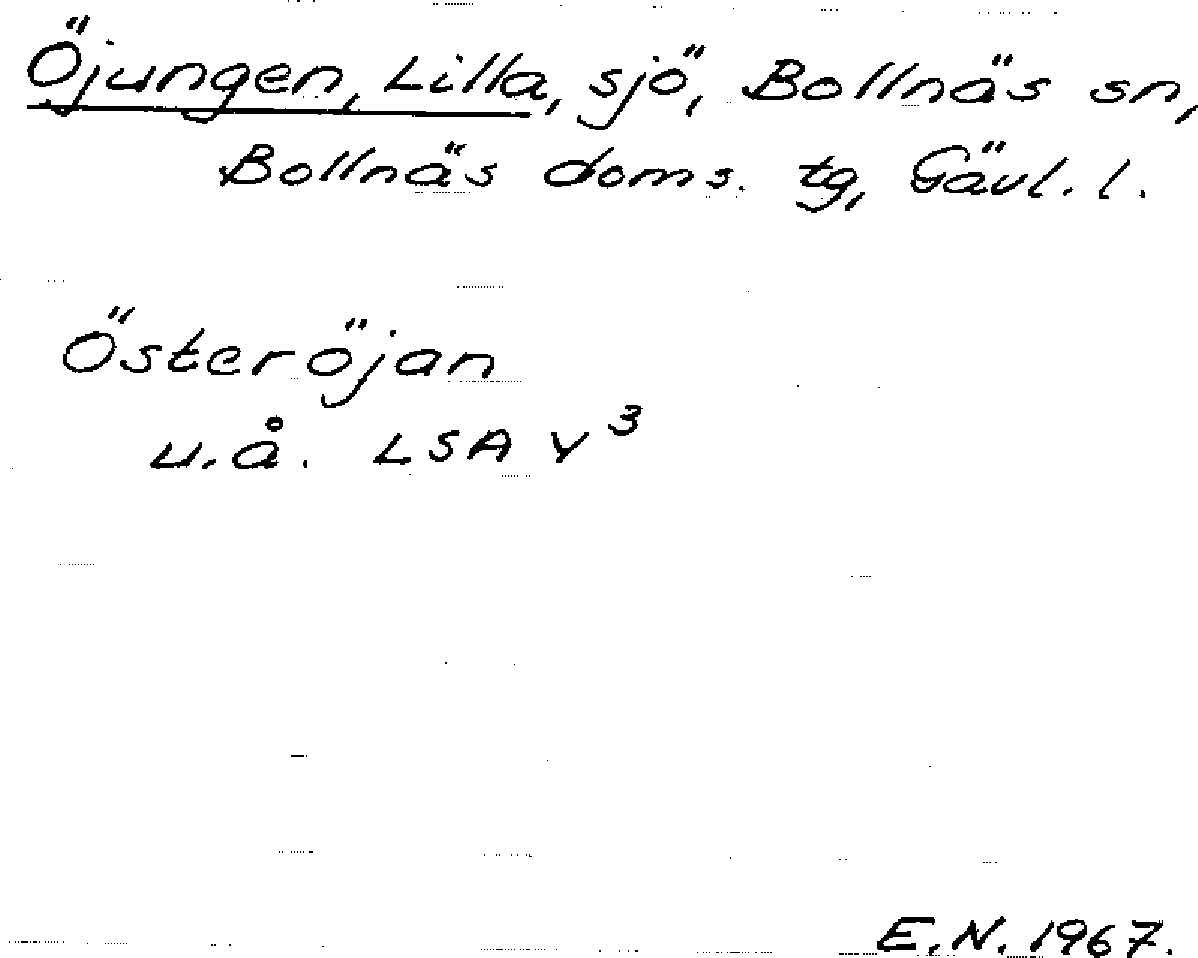 Öjungen, Lilla, sjö, Bollnäs sn,
Bollnäs doms. tg, Gävl. l.
Österöjan
u.å. LSA v³
E.N. 1967.